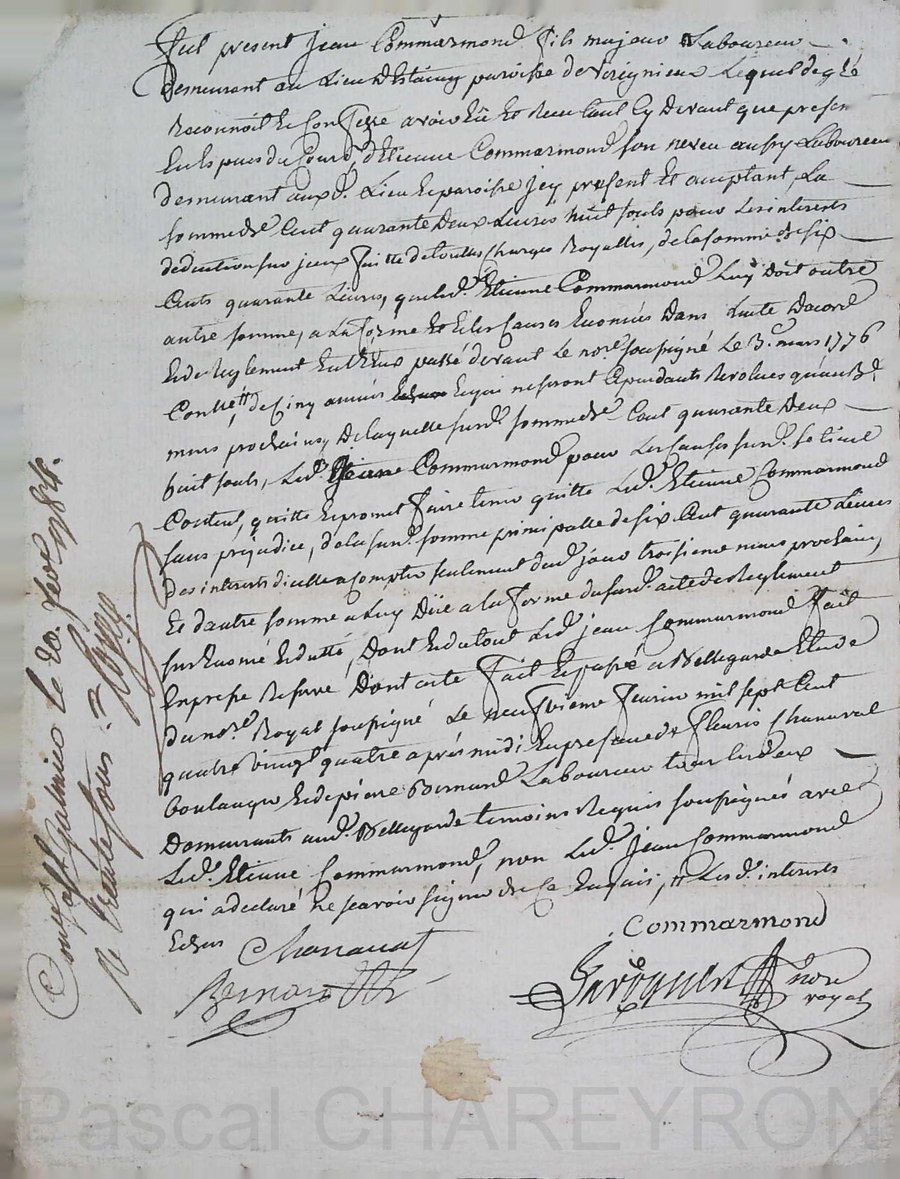 Fut present Jean Commarmond fils majeur Laboureur
demeurant au Lieu d'Estaing paroisse de Lequel de gré
Reconnoit et Confesse avoir Eû et Recu tant Cy devant que presen
En Espuces du Cours, d'Etienne Commarmond son neveu aussy Laboureur
demeurant aux d. Lieu et paroisse Jcy present Et acceptant, La
somme de Cent quarante deux Livres huit souls pour Les interests
deduction sur jceux faitte de touttes charges Royalles, de la somme de six
Cents quarante Livres, que led. Etienne Commarmond Luy doit outre
autre somme, a La forme Et et les Causes Enoncées Dans Lacte Dacord
Et de Reglement Entr'Eux passé devant Le nore. soussigné Le 3e. mars 1776
de Cinq années Et qui ne seront Cependants Revolues qu'au 3e.
mars prochain, de laquelle susd. somme de Cent quarante Deux
huit souls, Led. Jean Commarmond pour Les Causes susd. se tient
Content, quitte et promet faire tenir quitte Led. Etienne Commarmond
sans prejudice, de la susd. somme principalle de six Cent quarante Livres
des interests d'icelle a Compter seulement dud. jour troisieme mars prochain,
Et d'autre somme a Luy Düe a la forme du susd. acte de Reglement
sus Enoncé Et datté, Dont Et du tout Led. jean Commarmond fait
Expresse Reserve, Dont acte fait Et passé a Bellegarde Etude
du nore. Royal soussigné Le neufvieme fevrier mil sept Cent
quatre vingt quatre après midi En presence de Fleuris Chanavat
boulanger Et de pierre Bernard Laboureur tous Les deux
Demeurants aud. Bellegarde temoins Requis soussignés avec
Led. Etienne Commarmond, non Led. Jean Commarmond
qui a declaré ne scavoir signer de ce Enquis, # Les d. interests
Echus
Commarmond
Chanavat
Bernard
nore
royal
Conlé a St Galmier le 20. fevr 1784.
R. trente sous.
Pascal CHAREYRON